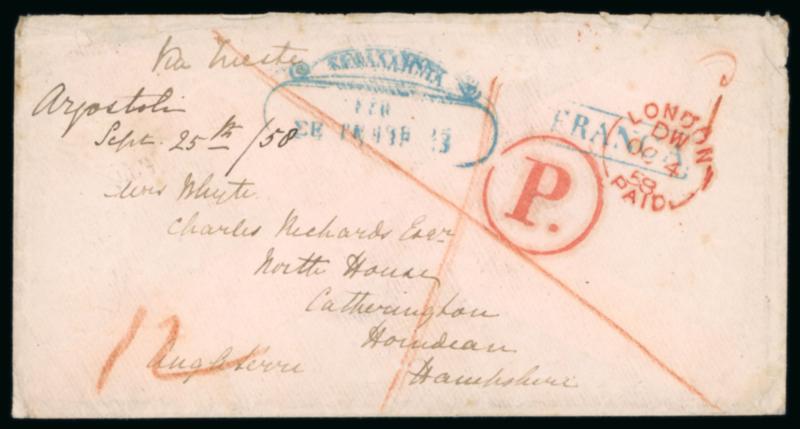 Via Trieste
ΚΕΦΑΛΛΗΝΙΑ
Argostoli
Sept. 25th /58
LONDON
DW
OC 4
58
PAID
FRANCA
P.
Mrs Whyte
Charles Richards Esqr
North House
Catherington
Horndean
Hampshire
Angleterre
12